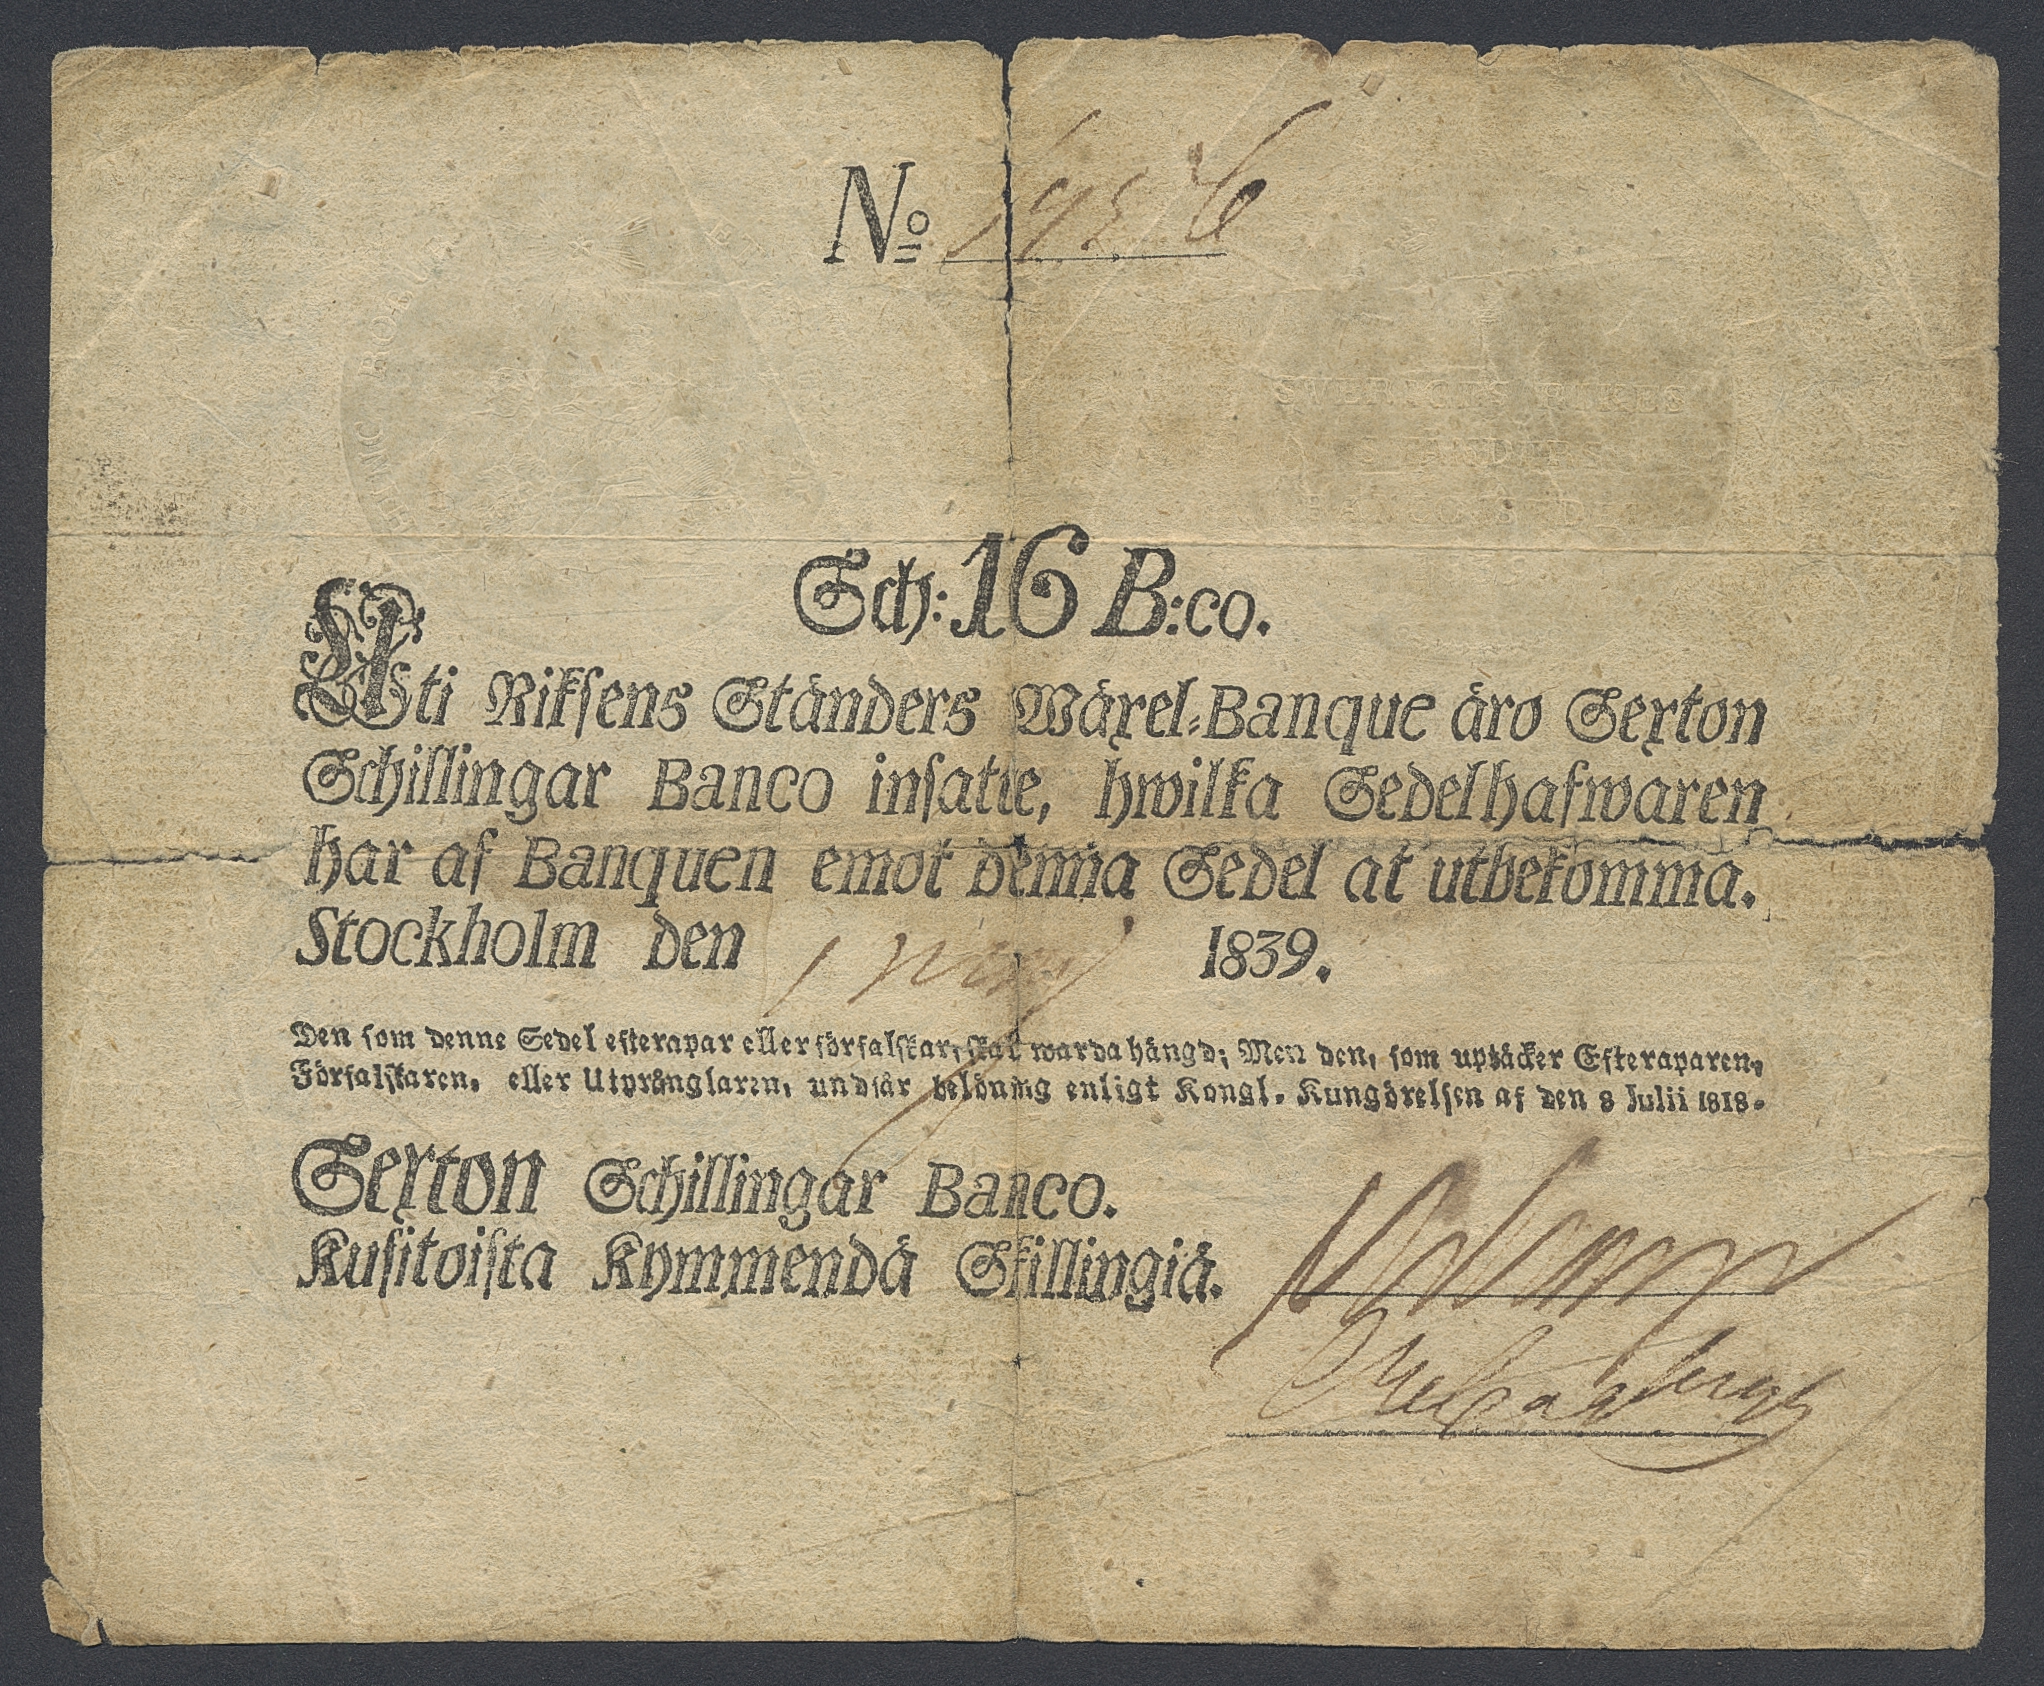 No
HINC ROBUR ET
SVERIGES RIKES
STÄNDERS
BANCO
Sch: 16 B:co.
Uti Riksens Ständers Wäxel-Banque äro Sexton
Schillingar Banco insatte, hwilka Sedelhafwaren
har af Banquen emot denna Sedel at utbekomma.
Stockholm den 1 1839.
Den som denne Sedel efterapar eller förfalskar, skal warda hängd; Men den, som uptäcker Efteraparen,
Förfalskaren, eller Utprånglaren, undfår belöning enligt Kongl. Kungörelsen af den 8 Julii 1818.
Sexton Schillingar Banco.
Kusitoista Kymmendä Skillingiä.